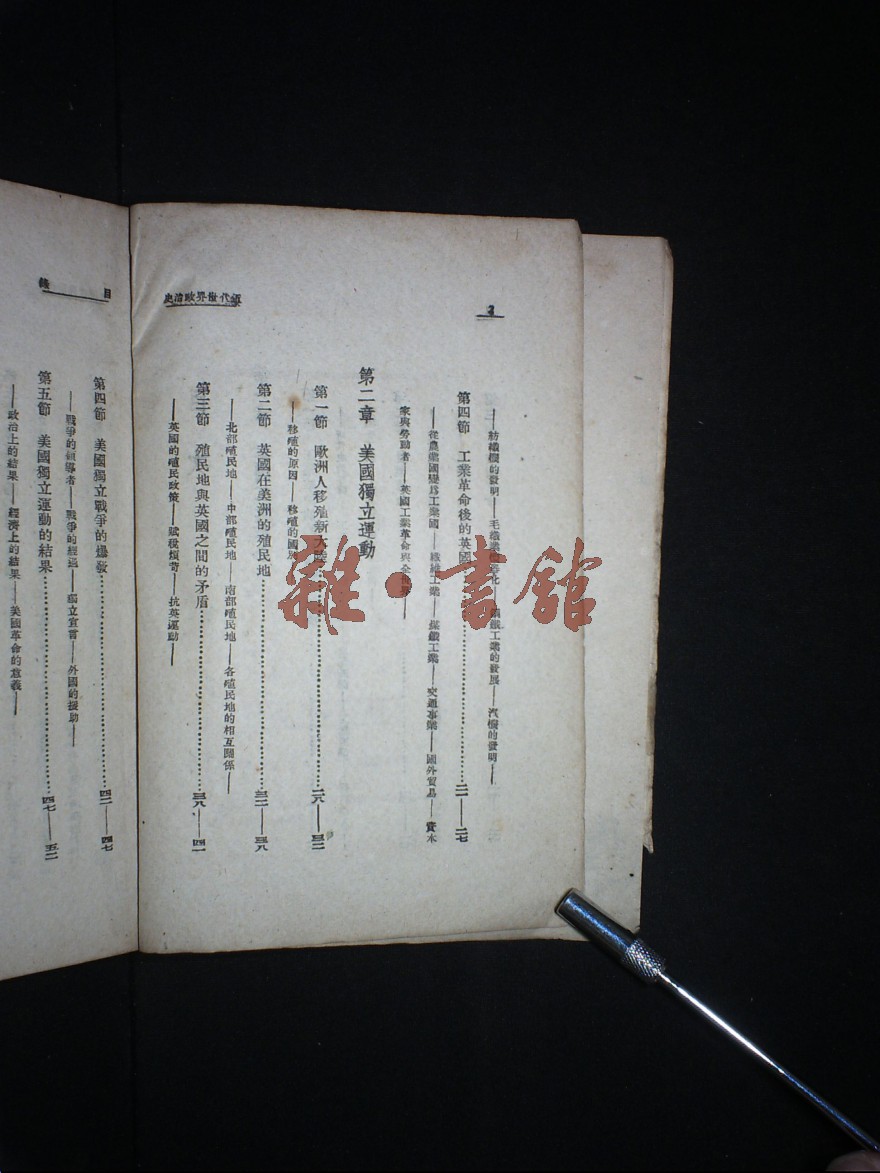 2
近代世界政治史
——紡織機的發明——毛織業的進化——鋼鐵工業的發展——汽機的發明——
第四節 工業革命後的英國…………二一——二七
——從農業國變爲工業國——纖維工業——煤鐵工業——交通事業——國外貿易——資本
家與勞動者——英國工業革命與全世界——
第二章 美國獨立運動
第一節 歐洲人移殖新大陸…………二八——三二
——移殖的原因——移殖的國別
第二節 英國在美洲的殖民地…………三二——三八
——北部殖民地——中部殖民地——南部殖民地——各殖民地的相互關係——
第三節 殖民地與英國之間的矛盾…………三八——四一
——英國的殖民政策——賦稅煩苛——抗英運動——
目錄
第四節 美國獨立戰爭的爆發…………四一——四七
——戰爭的領導者——戰爭的經過——獨立宣言——外國的援助——
第五節 美國獨立運動的結果…………四七——五二
——政治上的結果——經濟上的結果——美國革命的意義——
雜·書館